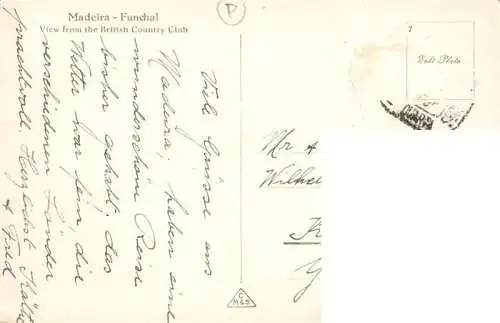 Madeira - Funchal
View from the British Country Club
Viele Grüsse aus
Madeira, haben eine
wunderschöne Reise
bisher gehabt. das
Wetter war fein, die
verschiedenen Länder
prachtvoll. Herzlichst Käthe
& Fred
Mr &
Wilhel
7
P
C
M&S